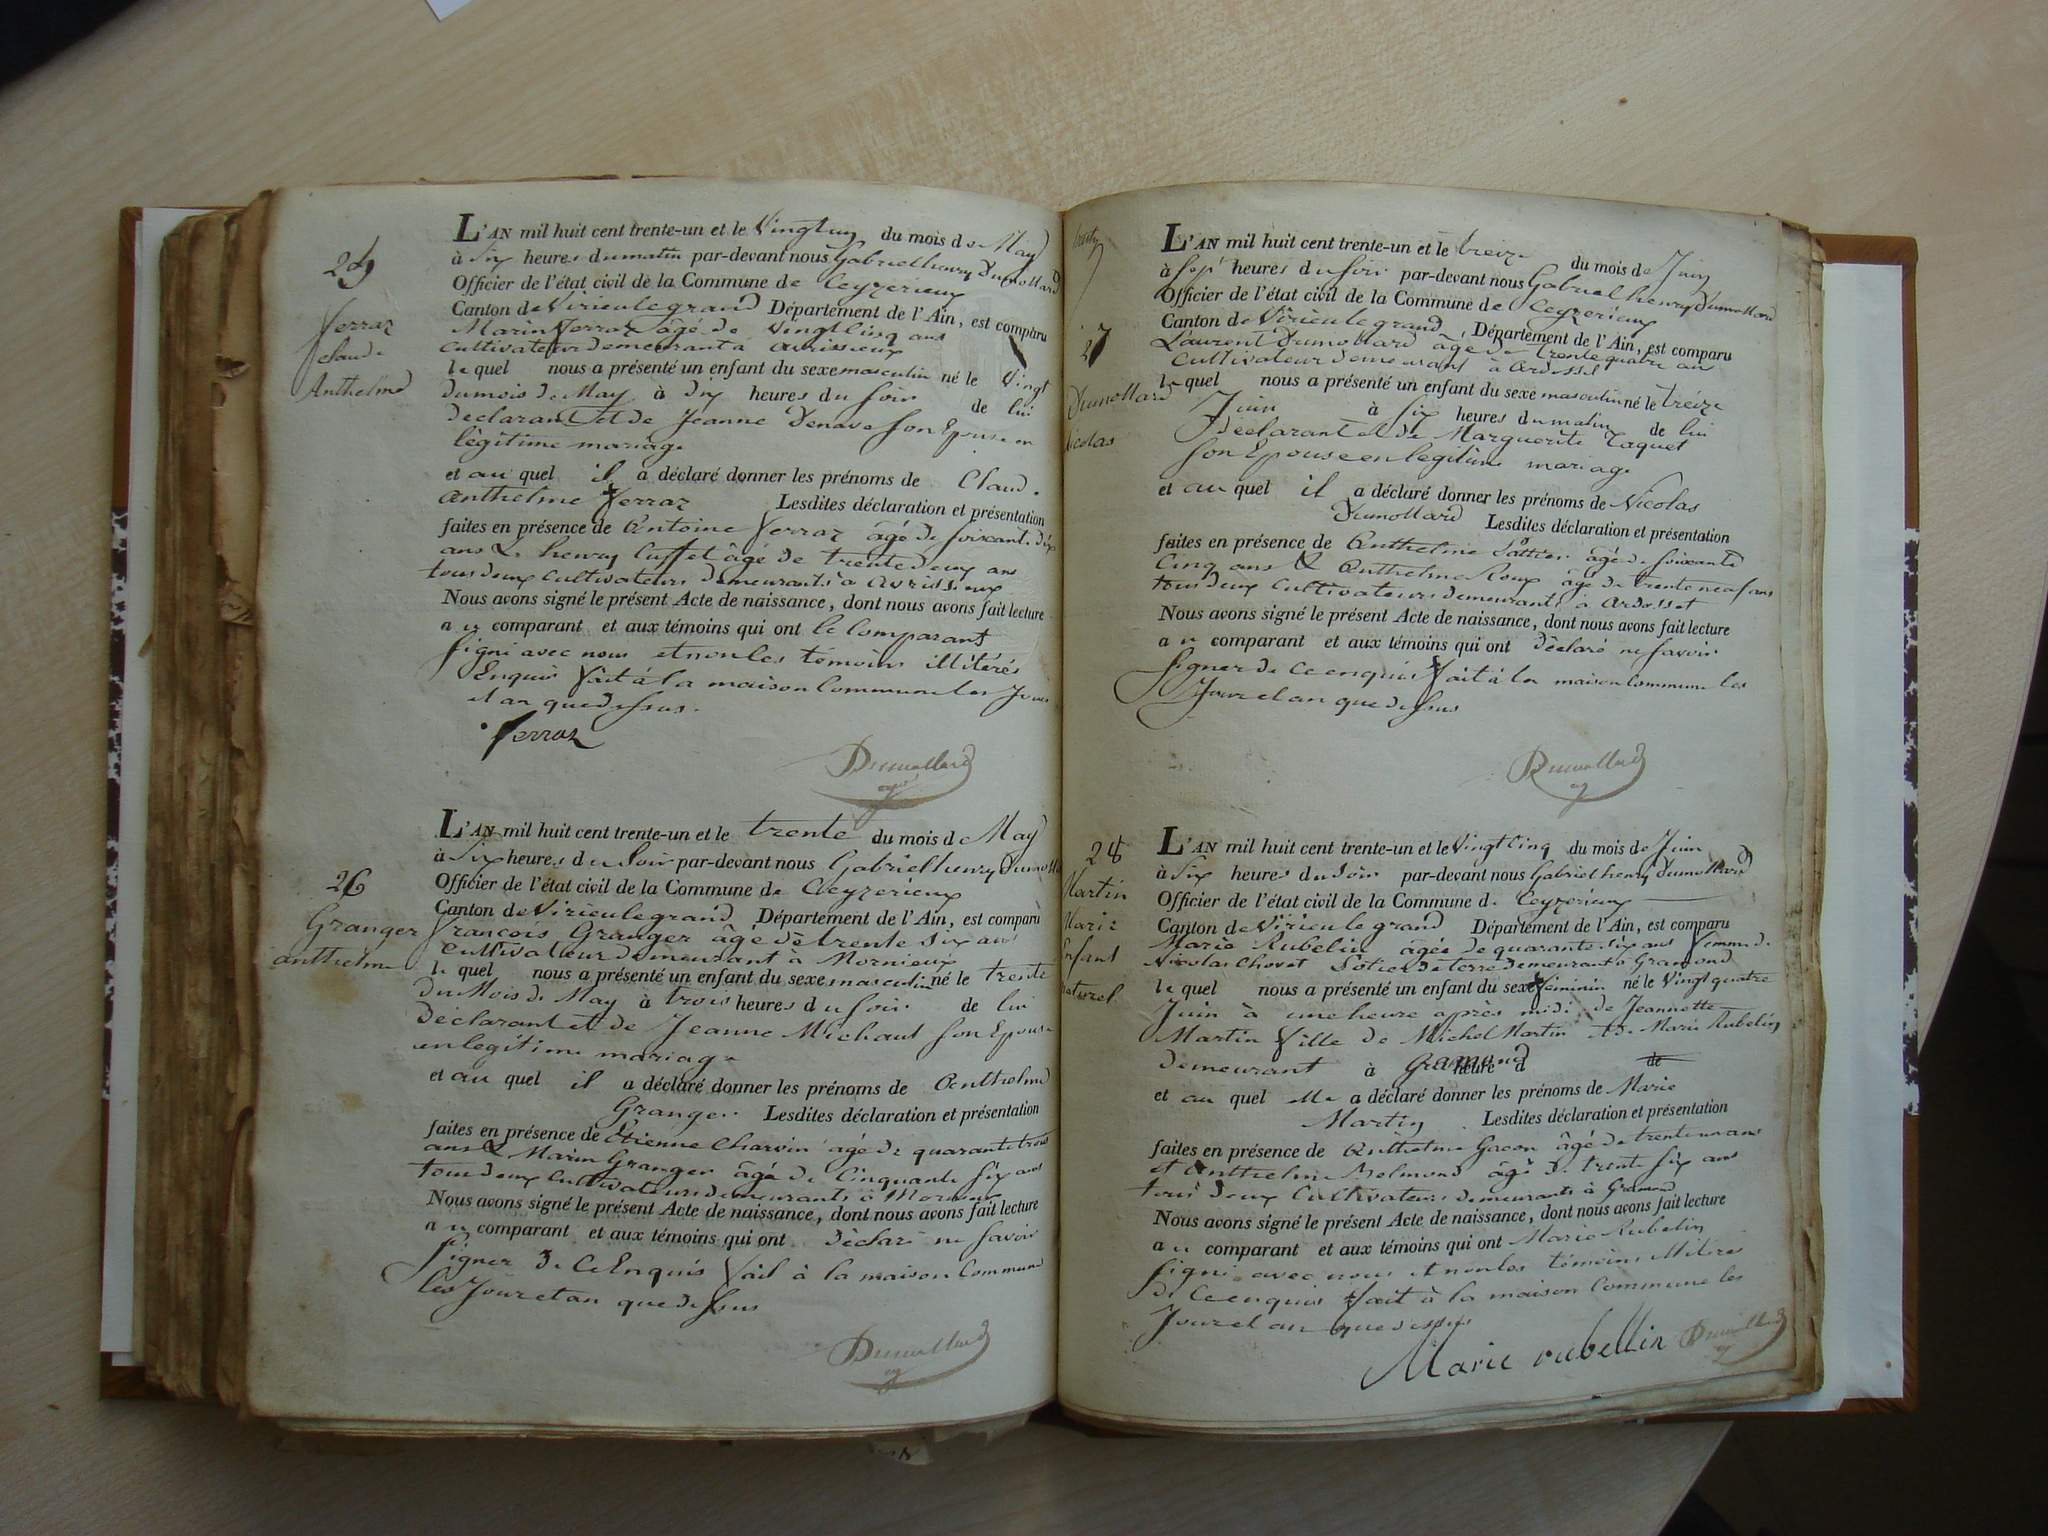 25
Ferraz
Claude
Anthelme
L'AN mil huit cent trente-un et le Vingt un du mois de May
à Six heures du matin par-devant nous Gabriel henry Dumollard
Officier de l'état civil de la Commune de Ceyzerieux
Canton de Virieu le grand Département de l'Ain, est comparu
Marin Ferraz âgé de Vingt Cinq ans
Cultivateur demeurant à Avrissieux
le quel nous a présenté un enfant du sexe masculin né le Vingt
du mois de May à dix heures du soir de lui
déclarant et de Jeanne Denave son Epouse en
légitime mariage
et au quel il a déclaré donner les prénoms de Claude
Anthelme Ferraz Lesdites déclaration et présentation
faites en présence de Antoine Ferraz âgé de soixante dix
ans & henry Cuffet âgé de trente deux ans
tous deux Cultivateurs demeurants à Avrissieux
Nous avons signé le présent Acte de naissance, dont nous avons fait lecture
au comparant et aux témoins qui ont le Comparant
signé avec nous et non les témoins illitérés
Enquis fait à la maison Commune les Jour
et an que dessus.
Ferraz
Dumollard
26
Granger
anthelme
L'AN mil huit cent trente-un et le trente du mois de May
à Six heures du Soir par-devant nous Gabriel henry Dumollard
Officier de l'état civil de la Commune de Ceyzerieux
Canton de Virieu le grand Département de l'Ain, est comparu
francois Granger âgé de trente six ans
Cultivateur demeurant à Mornieux
le quel nous a présenté un enfant du sexe masculin né le trente
du Mois de May à trois heures du soir de lui
Déclarant et de Jeanne Michaut son Epouse
en legitime mariage
et au quel il a déclaré donner les prénoms de Anthelme
Granger Lesdites déclaration et présentation
faites en présence de Etienne Charvin âgé de quarante trois
ans & Marin Granger âgé de Cinquante six ans
tous deux Cultivateurs demeurants à Mornieux
Nous avons signé le présent Acte de naissance, dont nous avons fait lecture
au comparant et aux témoins qui ont déclaré ne savoir
signer de ce Enquis fait à la maison Commune
les Jour et an que dessus
Dumollard
27
Dumollard
Nicolas
L'AN mil huit cent trente-un et le treize du mois de Juin
à sept heures du soir par-devant nous Gabriel henry Dumollard
Officier de l'état civil de la Commune de Ceyzerieux
Canton de Virieu le grand, Département de l'Ain, est comparu
Laurent Dumollard âgé de trente quatre ans
Cultivateur demeurant à Ardosset
le quel nous a présenté un enfant du sexe masculin né le treize
Juin à six heures du matin de lui
Déclarant et de Marguerite Taquet
son Epouse en legitime mariage
et au quel il a déclaré donner les prénoms de Nicolas
Dumollard Lesdites déclaration et présentation
faites en présence de Anthelme âgé de soixante
Cinq ans & Anthelme Roux âgé de trente neuf ans
tous deux Cultivateurs demeurants à Ardosset
Nous avons signé le présent Acte de naissance, dont nous avons fait lecture
au comparant et aux témoins qui ont déclaré ne savoir
signer de ce enquis fait à la maison Commune les
Jour et an que dessus
Dumollard
28
Martin
Marie
Enfant
naturel
L'AN mil huit cent trente-un et le Vingt Cinq du mois de Juin
à Six heures du Soir par-devant nous Gabriel henry Dumollard
Officier de l'état civil de la Commune de Ceyzerieux
Canton de Virieu le grand Département de l'Ain, est comparu
Marie Rubelin âgée de quarante six ans femme de
Nicolas Chovet Potier de terre demeurant à Gramond
le quel nous a présenté un enfant du sexe féminin né le Vingt quatre
Juin à une heure après midi de Jeannette
Martin fille de Michel Martin & de Marie Rubelin
demeurant à Gramond heure d de
et au quel elle a déclaré donner les prénoms de Marie
Martin Lesdites déclaration et présentation
faites en présence de Anthelme Gacon âgé de trente un ans
et Anthelme Belmond âgé de trente six ans
tous deux Cultivateurs demeurants à Gramond
Nous avons signé le présent Acte de naissance, dont nous avons fait lecture
au comparant et aux témoins qui ont Marie Rubelin
signé avec nous et non les témoins illitérés
de ce enquis fait à la maison Commune les
Jour et an que dessus
Marie rubellin Dumollard